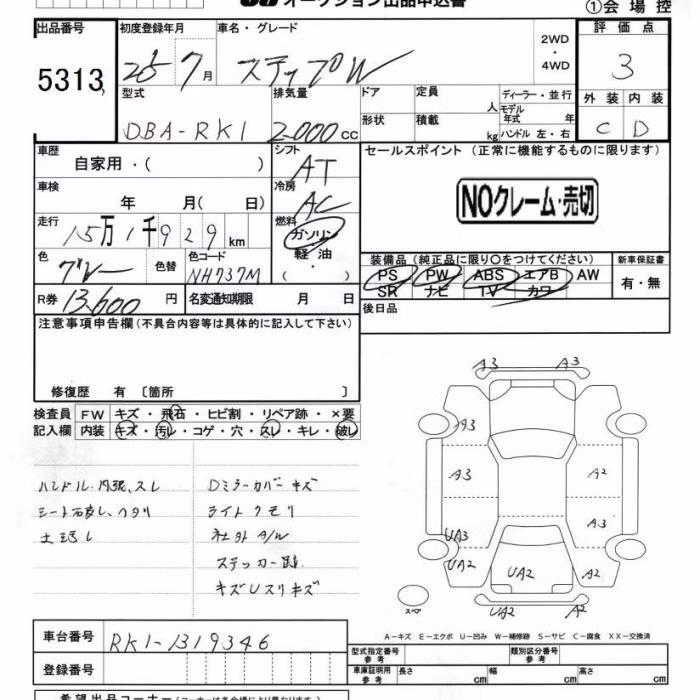 オークション出品申込書
①会場控
出品番号
5313
初度登録年月
25 7月
車名・グレード
ステップW
2WD
・
4WD
評価点
3
型式
DBA-RK1
排気量
2.000cc
ドア
形状
定員 人
積載 kg
ディーラー・並行
モデル年式 年
ハンドル 左・右
外装 内装
C D
車歴
自家用・( )
シフト
AT
セールスポイント (正常に機能するものに限ります)
NOクレーム・売切
車検
年 月( 日)
冷房
AC
走行
15万1千929km
燃料
ガソリン
軽油
・( )
色
グレー
色替
色コード
NH737M
装備品(純正品に限り○をつけてください)
PS PW ABS エアB AW
SR ナビ TV カワ
新車保証書
有・無
R券 13,600円
名変通知期限 月 日
後日品
注意事項申告欄(不具合内容等は具体的に記入して下さい)
修復歴 有 〔箇所 〕
検査員記入欄
FW キズ・飛石・ヒビ割・リペア跡・×要
内装 キズ・汚レ・コゲ・穴・スレ・キレ・破レ
ハンドル・内張、スレ
シート破レ、ヘタリ
Dミラーカバーキズ
ライトクモリ
社外A/W
ステッカー跡
キズUスリキズ
A3 A3
A3
A3 A2
A3
UA3
UA2 UA2 A2
UA2 A2
スペア
A-キズ E-エクボ U-凹み W-補修跡 S-サビ C-腐食 XX-交換済
車台番号 RK1-1319346
登録番号
型式指定番号 参考
類別区分番号 参考
車庫証明用 参考 長さ cm 幅 cm 高さ cm
希望出品コーナー